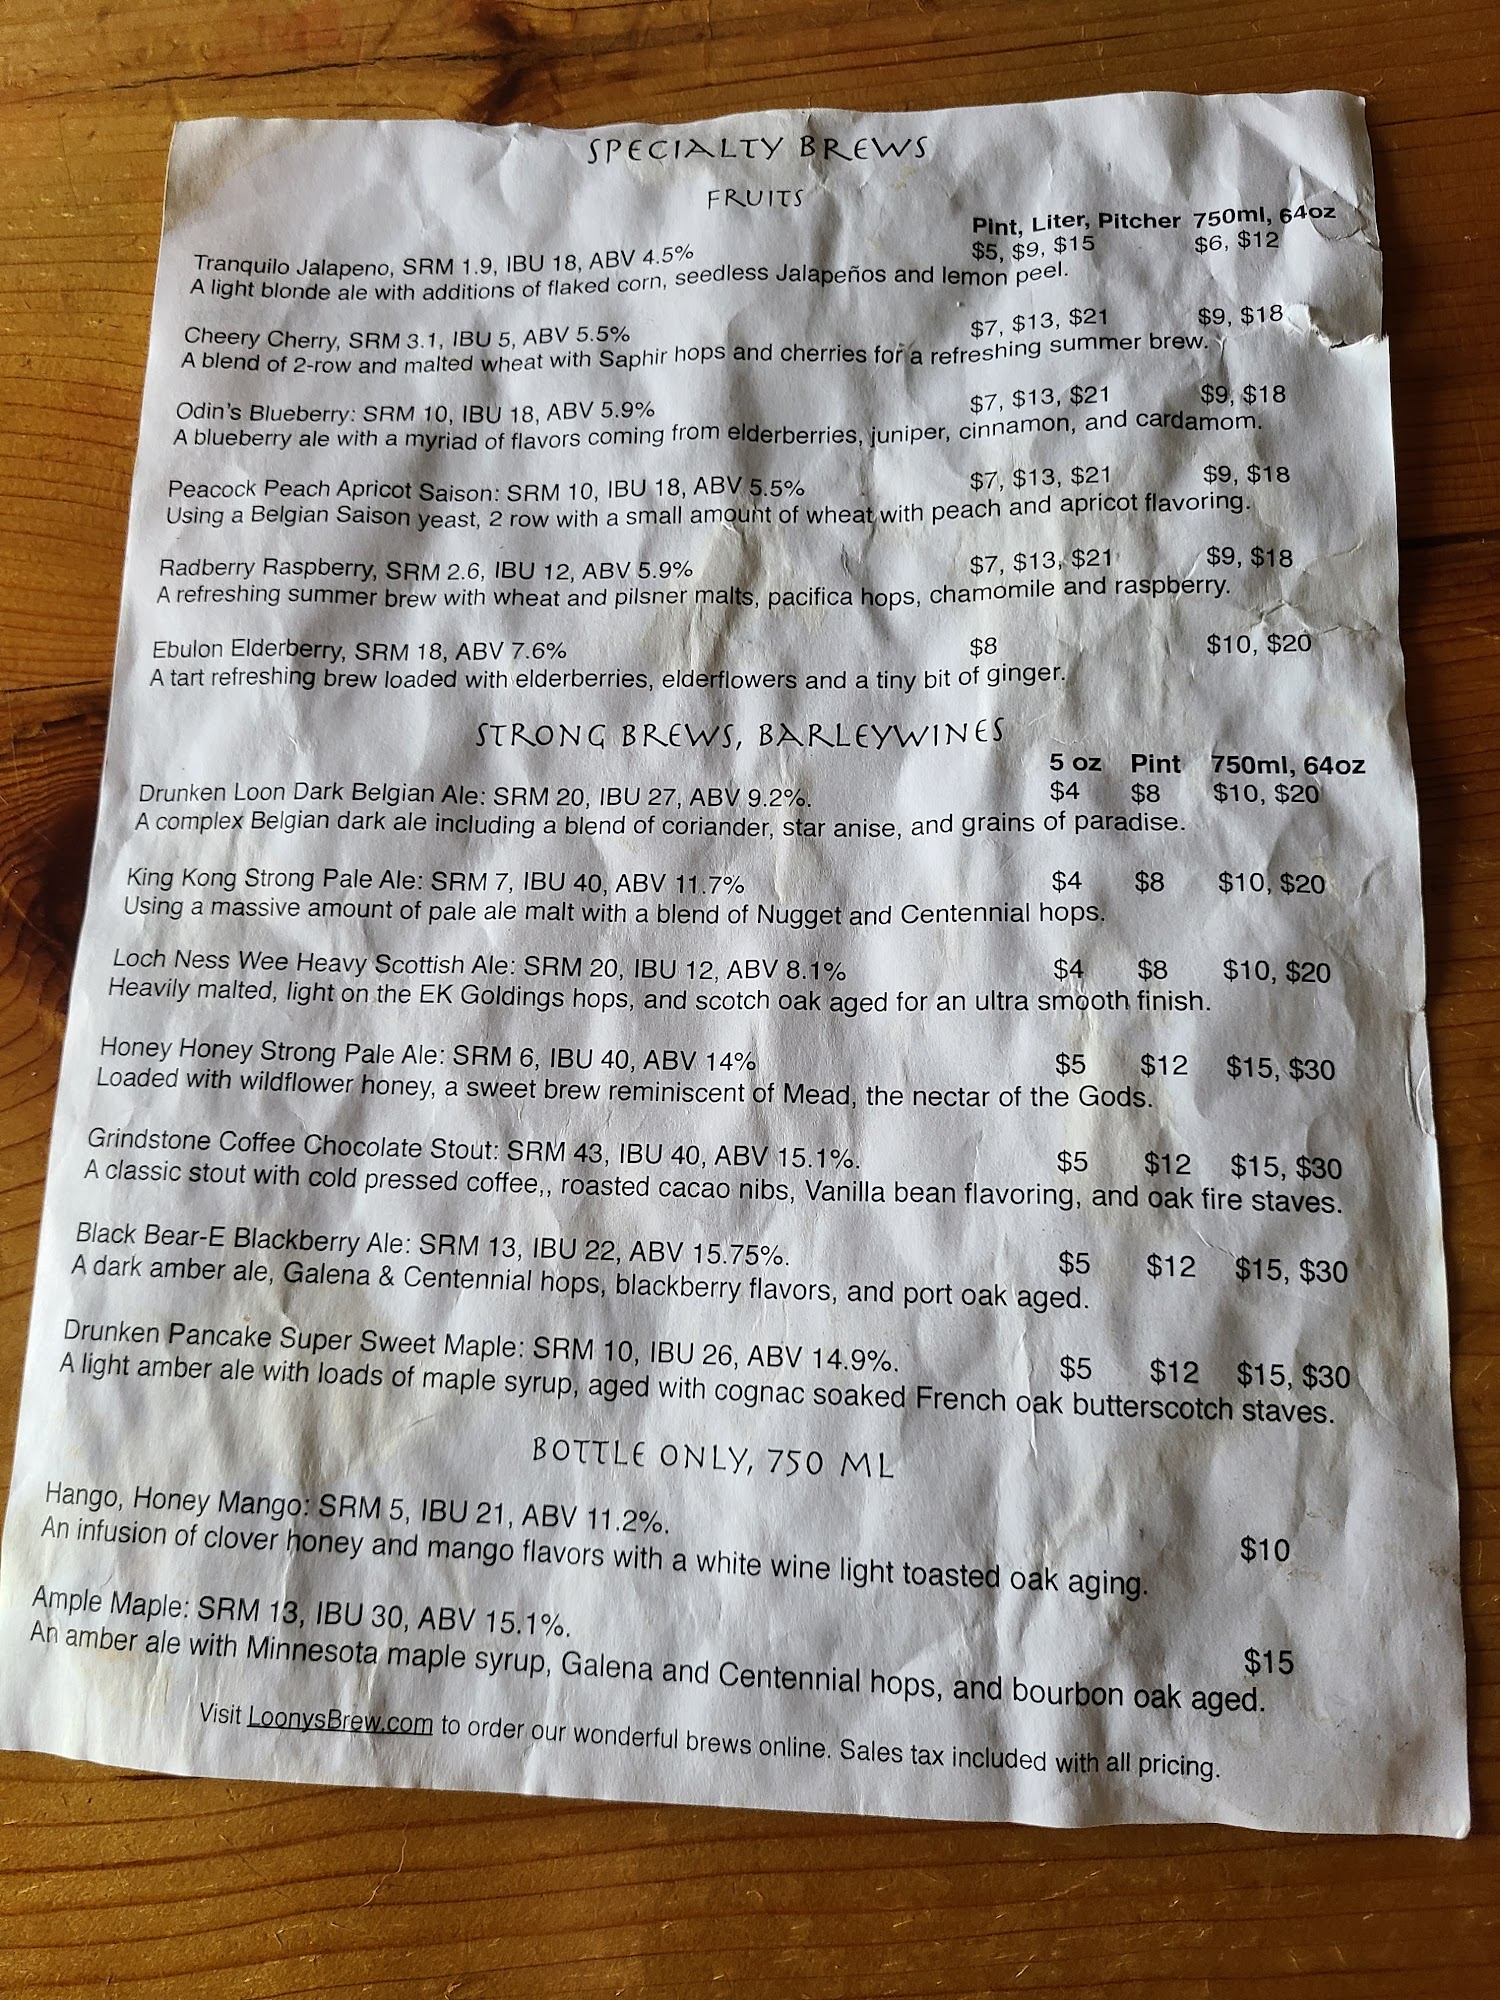 SPECIALTY BREWS
FRUITS
Pint, Liter, Pitcher 750ml, 64oz
Tranquilo Jalapeno, SRM 1.9, IBU 18, ABV 4.5% $5, $9, $15 $6, $12
A light blonde ale with additions of flaked corn, seedless Jalapeños and lemon peel.
Cheery Cherry, SRM 3.1, IBU 5, ABV 5.5% $7, $13, $21 $9, $18
A blend of 2-row and malted wheat with Saphir hops and cherries for a refreshing summer brew.
Odin's Blueberry: SRM 10, IBU 18, ABV 5.9% $7, $13, $21 $9, $18
A blueberry ale with a myriad of flavors coming from elderberries, juniper, cinnamon, and cardamom.
Peacock Peach Apricot Saison: SRM 10, IBU 18, ABV 5.5% $7, $13, $21 $9, $18
Using a Belgian Saison yeast, 2 row with a small amount of wheat with peach and apricot flavoring.
Radberry Raspberry, SRM 2.6, IBU 12, ABV 5.9% $7, $13, $21 $9, $18
A refreshing summer brew with wheat and pilsner malts, pacifica hops, chamomile and raspberry.
Ebulon Elderberry, SRM 18, ABV 7.6% $8 $10, $20
A tart refreshing brew loaded with elderberries, elderflowers and a tiny bit of ginger.
STRONG BREWS, BARLEYWINES
5 oz Pint 750ml, 64oz
Drunken Loon Dark Belgian Ale: SRM 20, IBU 27, ABV 9.2%. $4 $8 $10, $20
A complex Belgian dark ale including a blend of coriander, star anise, and grains of paradise.
King Kong Strong Pale Ale: SRM 7, IBU 40, ABV 11.7% $4 $8 $10, $20
Using a massive amount of pale ale malt with a blend of Nugget and Centennial hops.
Loch Ness Wee Heavy Scottish Ale: SRM 20, IBU 12, ABV 8.1% $4 $8 $10, $20
Heavily malted, light on the EK Goldings hops, and scotch oak aged for an ultra smooth finish.
Honey Honey Strong Pale Ale: SRM 6, IBU 40, ABV 14% $5 $12 $15, $30
Loaded with wildflower honey, a sweet brew reminiscent of Mead, the nectar of the Gods.
Grindstone Coffee Chocolate Stout: SRM 43, IBU 40, ABV 15.1%. $5 $12 $15, $30
A classic stout with cold pressed coffee,, roasted cacao nibs, Vanilla bean flavoring, and oak fire staves.
Black Bear-E Blackberry Ale: SRM 13, IBU 22, ABV 15.75%. $5 $12 $15, $30
A dark amber ale, Galena & Centennial hops, blackberry flavors, and port oak aged.
Drunken Pancake Super Sweet Maple: SRM 10, IBU 26, ABV 14.9%. $5 $12 $15, $30
A light amber ale with loads of maple syrup, aged with cognac soaked French oak butterscotch staves.
BOTTLE ONLY, 750 ML
Hango, Honey Mango: SRM 5, IBU 21, ABV 11.2%. $10
An infusion of clover honey and mango flavors with a white wine light toasted oak aging.
Ample Maple: SRM 13, IBU 30, ABV 15.1%. $15
An amber ale with Minnesota maple syrup, Galena and Centennial hops, and bourbon oak aged.
Visit LoonysBrew.com to order our wonderful brews online. Sales tax included with all pricing.